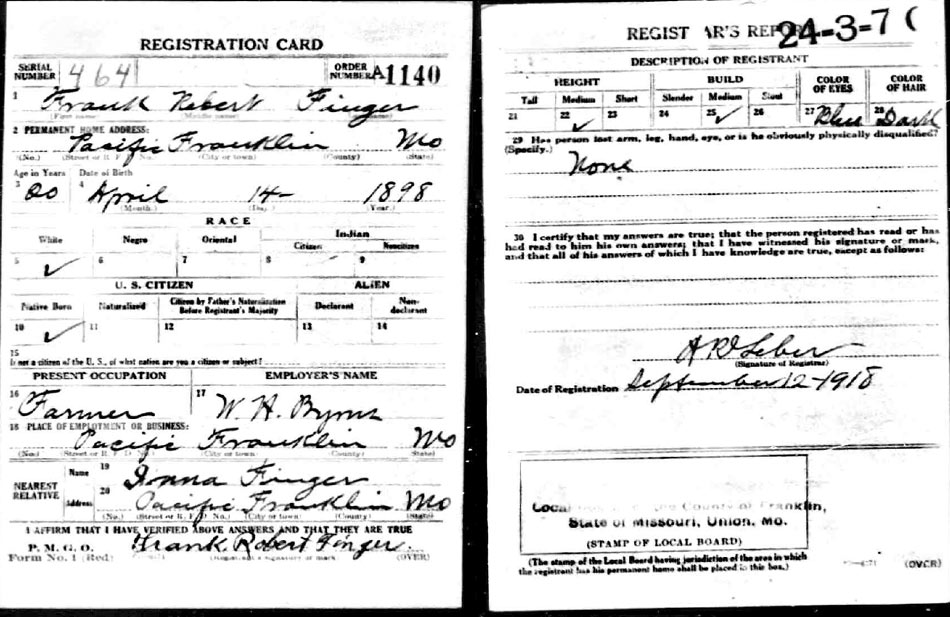 REGISTRATION CARD
SERIAL NUMBER 464 ORDER NUMBER A1140
1 Frank Robert Finger
(First name) (Middle name) (Last name)
2 PERMANENT HOME ADDRESS:
Pacific Franklin Mo
(No.) (Street or R. F. D. No.) (City or town) (County) (State)
Age in Years Date of Birth
3 20 4 April 14- 1898
(Month.) (Day.) (Year.)
RACE
White Negro Oriental Indian
Citizen Noncitizen
5 ✓ 6 7 8 9
U. S. CITIZEN ALIEN
Native Born Naturalized Citizen by Father's Naturalization Before Registrant's Majority Declarant Non-declarant
10 ✓ 11 12 13 14
15
If not a citizen of the U. S., of what nation are you a citizen or subject?
PRESENT OCCUPATION EMPLOYER'S NAME
16 Farmer 17 W. H. Byrns
18 PLACE OF EMPLOYMENT OR BUSINESS:
Pacific Franklin Mo
(No.) (Street or R. F. D. No.) (City or town) (County) (State)
NEAREST RELATIVE Name 19 Finger
Address 20 Pacific Franklin Mo
(No.) (Street or R. F. D. No.) (City or town) (County) (State)
I AFFIRM THAT I HAVE VERIFIED ABOVE ANSWERS AND THAT THEY ARE TRUE
P. M. G. O.
Form No. 1 (Red) Frank Robert Finger
(Registrant's signature or mark) (OVER)
REGISTRAR'S REPORT 24-3-7 (
DESCRIPTION OF REGISTRANT
HEIGHT BUILD COLOR OF EYES COLOR OF HAIR
Tall Medium Short Slender Medium Stout
21 22 ✓ 23 24 25 ✓ 26 27 Blue 28 Dark
29 Has person lost arm, leg, hand, eye, or is he obviously physically disqualified?
(Specify.)
None
30 I certify that my answers are true; that the person registered has read or has
had read to him his own answers; that I have witnessed his signature or mark,
and that all of his answers of which I have knowledge are true, except as follows:
(Signature of Registrar)
Date of Registration September 12-1918
Local County of Franklin,
State of Missouri, Union, Mo.
(STAMP OF LOCAL BOARD)
(The stamp of the Local Board having jurisdiction of the area in which
the registrant has his permanent home shall be placed in this box.)
(OVER)